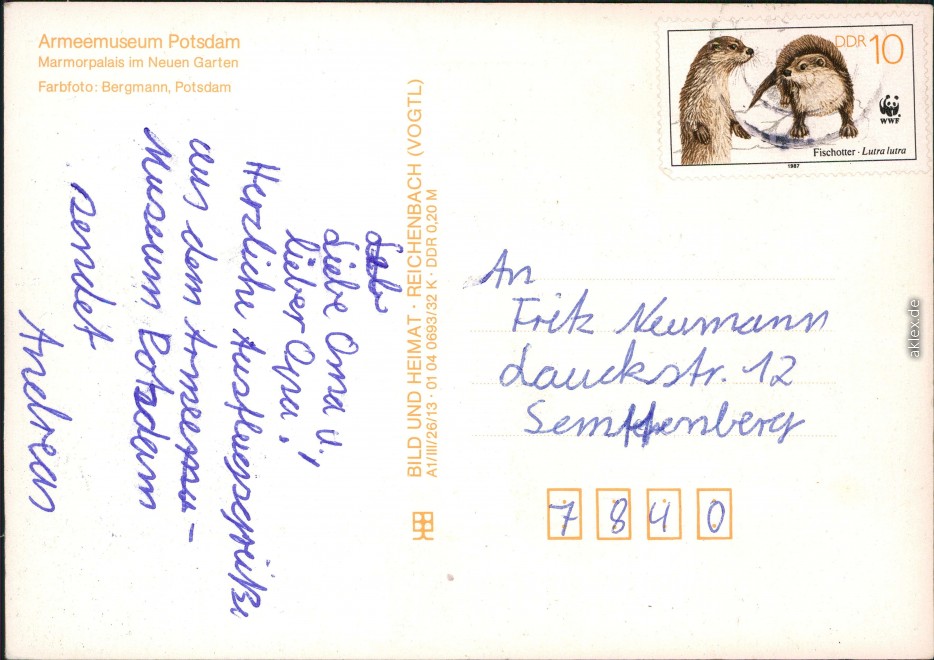 Armeemuseum Potsdam
Marmorpalais im Neuen Garten
Farbfoto: Bergmann, Potsdam
Liebe Oma u.,
lieber Opa!
Herzliche Ausfluegsgrüße
aus dem Armeemu-
Museum Potsdam
sendet
Andreas
BILD UND HEIMAT · REICHENBACH (VOGTL)
A1/III/26/13 · 01 04 0693/32 K · DDR 0,20 M
DDR 10
WWF
Fischotter · Lutra lutra
1987
An
Fritz Neumann
Lauckstr. 12
Semftenberg
7840
aklex.de